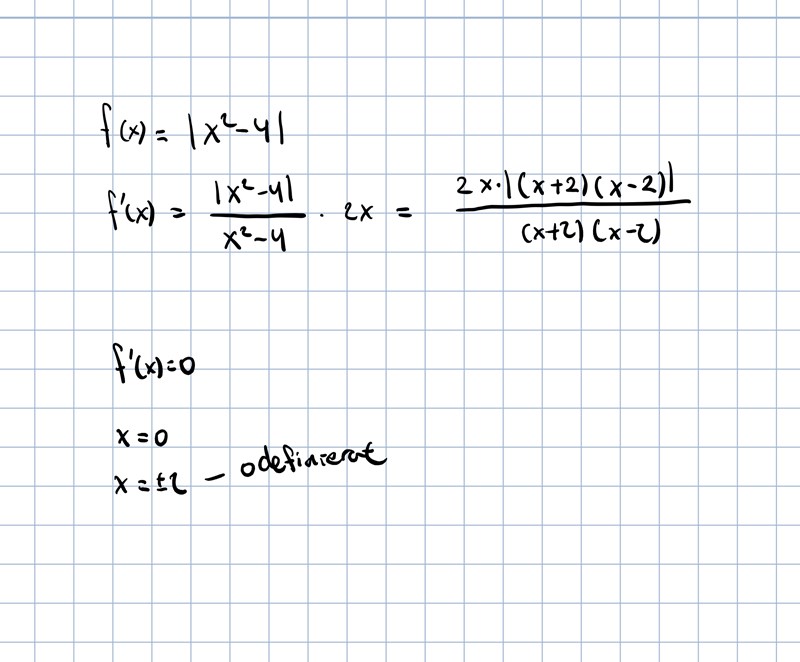 f(x) = |x²-4|
f'(x) = |x²-4| / x²-4 · 2x = 2x·|(x+2)(x-2)| / (x+2)(x-2)
f'(x)=0
x=0
x=±2 – odefinierat